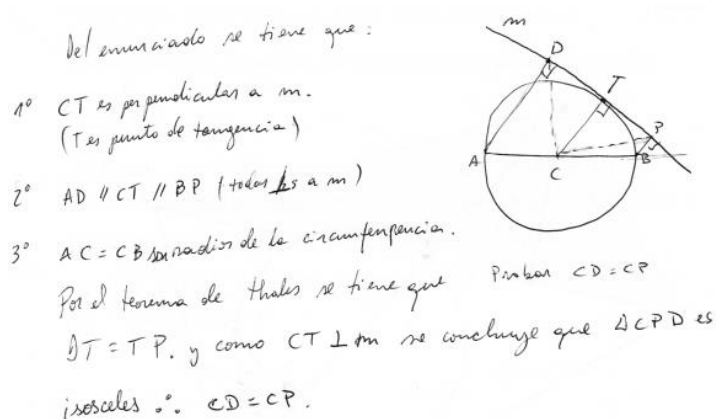 Del enunciado se tiene que:
1º CT es perpendicular a m.
(T es punto de tangencia)
2º AD // CT // BP (todas ⊥s a m)
3º AC = CB son radios de la circunferencia.
Por el teorema de Thales se tiene que
DT = TP. y como CT ⊥ m se concluye que Δ CPD es
isosceles ∴ CD = CP.
m
D
T
P
A
C
B
Probar CD = CP